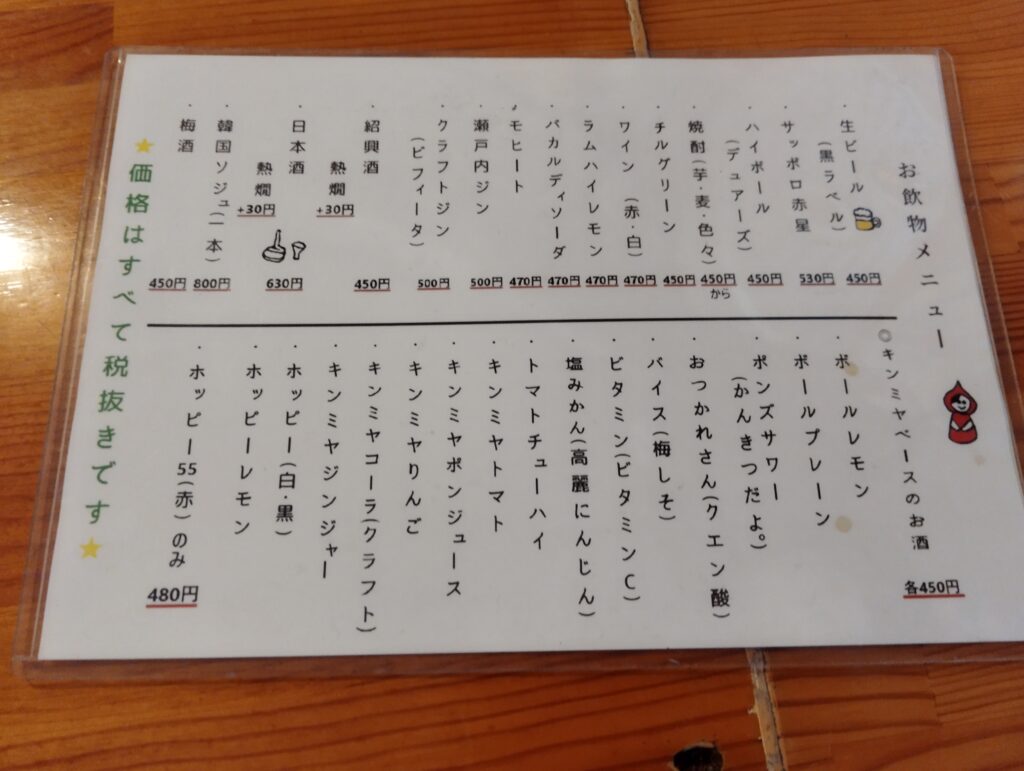 お飲物メニュー
・生ビール
(黒ラベル)
450円
・サッポロ赤星
530円
・ハイボール
(デュアーズ)
450円
・焼酎(芋・麦・色々)
450円
から
・チルグリーン
450円
・ワイン (赤・白)
470円
・ラムハイレモン
470円
・バカルディソーダ
470円
・モヒート
470円
・瀬戸内ジン
500円
・クラフトジン
(ビフィータ)
500円
・紹興酒
450円
熱燗
+30円
・日本酒
630円
熱燗
+30円
・韓国ソジュ(一本)
800円
・梅酒
450円
◎キンミヤベースのお酒
各450円
・ボールレモン
・ボールプレーン
・ポンズサワー
(かんきつだよ。)
・おつかれさん(クエン酸)
・バイス(梅しそ)
・ビタミン(ビタミンC)
・塩みかん(高麗にんじん)
・トマトチューハイ
・キンミヤトマト
・キンミヤポンジュース
・キンミヤりんご
・キンミヤコーラ(クラフト)
・キンミヤジンジャー
・ホッピー(白・黒)
・ホッピーレモン
・ホッピー55(赤)のみ
480円
★価格はすべて税抜きです★